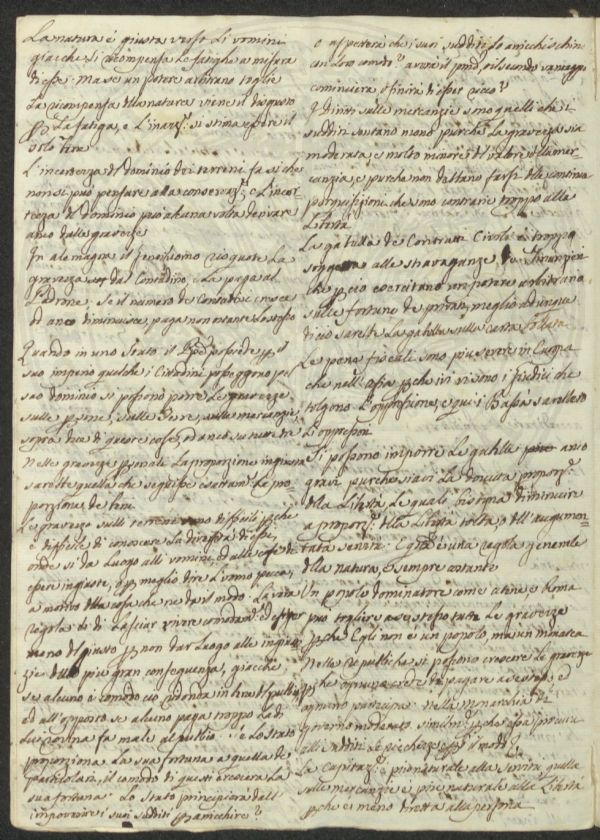 La natura è giusta verso li uomini
giacche si ricompensa le fatighe a misura
di esse. Ma se un potere arbitrario toglie
La ricompensa della natura viene il disgusto
La fatiga, e l'inaz: si stima essere il
solo bene
L'incertezza di Dominio dei terreni fa si che
non si può pensare alla conservaz e l'incer
tezza di dominio può alcuna volta derivare
anco dalle gravezze
In alemagna il Gentiluomo riscuote La
gravezza dal Contadino, e La paga al
Padrone. Se il numero de Contadini cresce
od anco diminuisce, paga non ostante lo stesso
Quando in uno Stato il possiede
suo impero qualche i Cittadini posseggono pel
suo dominio si possono porre le gravezze
sulle persone, sulle Terre, sulle mercanzie
sopra due di queste cose, ed anco su tutte tre
Nelle gravezze personale La proporzione ingiusta
sarebbe quella che seguisse esattam. Le pro
porzioni de beni
Le gravezze sulli terreni sono difficili perche
è difficile di conoscere La diversità d'essi,
onde si da Luogo alli uomini, ed alle cose di
essere ingiuste, o meglio dire l'uomo pecca,
a motivo della cosa che ne dà il modo. La vera
regola di di lasciar vivere comodam: ed esiger
meno del giusto non dar Luogo alle ingiusti
zie della più gran conseguenza, giacchè
se alcuno è comodo ciò ridonda in bene del publico
ed all'opposto se alcuno paga troppo La di
Lui rovina fa male al publico. Se lo Stato
proporziona La sua fortuna a quella de
particolari, il comodo di questi crescerà La
sua fortuna. Lo Stato principierà dall'
impoverire i suoi sudditi arricchire?
o aspetterà che i suoi sudditi lo arricchischino
con loro comodi? avrà il primo, o il secondo vantaggio
comincierà, o finirà di esser ricco?
I Diritti sulle mercanzie sono quelli che i
sudditi sentono meno purche La gravezza sia
moderata, e molto minore del valore della mer
canzia, e purche non debbano farsi delle continue
perquisizioni, che sono contrarie troppo alla
Libertà
La gabella de Contratti Civili è troppo
soggetta alle stravaganze
che perciò esercitano un potere arbitrario
sulle fortune de privati, meglio adunque
di ciò sarebbe La gabella sulla carta bollata
Le pene fiscali sono più severe in Europa
che nell'asia perche ivi vi sono i giudici che
tolgono l'oppressione, e qui i Bassà sarebbero
l'oppressori
Si possono imporre Le gabelle anco
gravi purche siavi La dovuta proporz:
della Libertà, Le quali bisogna diminuire
a proporz: della Libertà tolta, o dell'augumen
tata servitù. Egli è una regola generale
della natura, e sempre costante
Un popolo dominatore come atene, e Roma
può togliere a se stesso tutte le gravezze
perche Egli non è un popolo, ma un monarca
Nelle republiche si possono crescere le gravezze
perche ognuno crede di pagare a se stesso, e
ognuno partecipa: nella monarchia di
governo moderato similm: perche essa procura
alli sudditi Le ricchezze, ed il modo
La Capitaz: è più naturale alla servitù, quella
sulle mercanzie è più naturale alla Libertà
perche è meno diretta alla persona